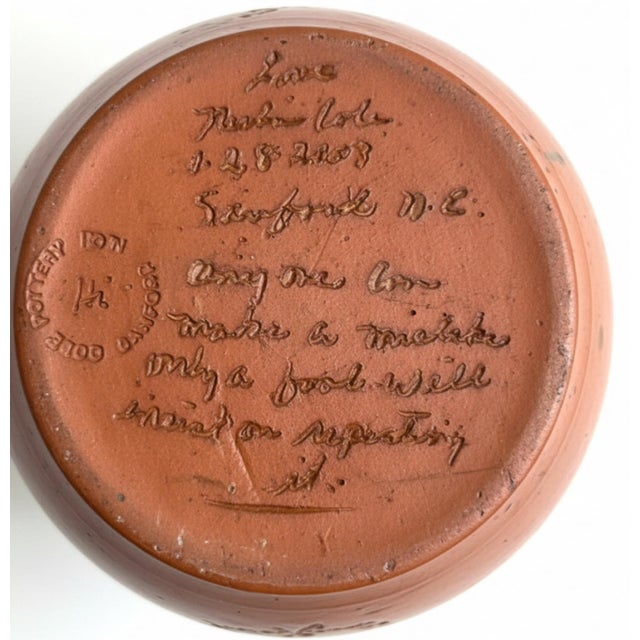 Love
Neolia Cole
1.28 2008
Sanford N.C.
any one can
make a mistake
only a fool will
insist on repeating
it.
COLE POTTERY
SANFORD